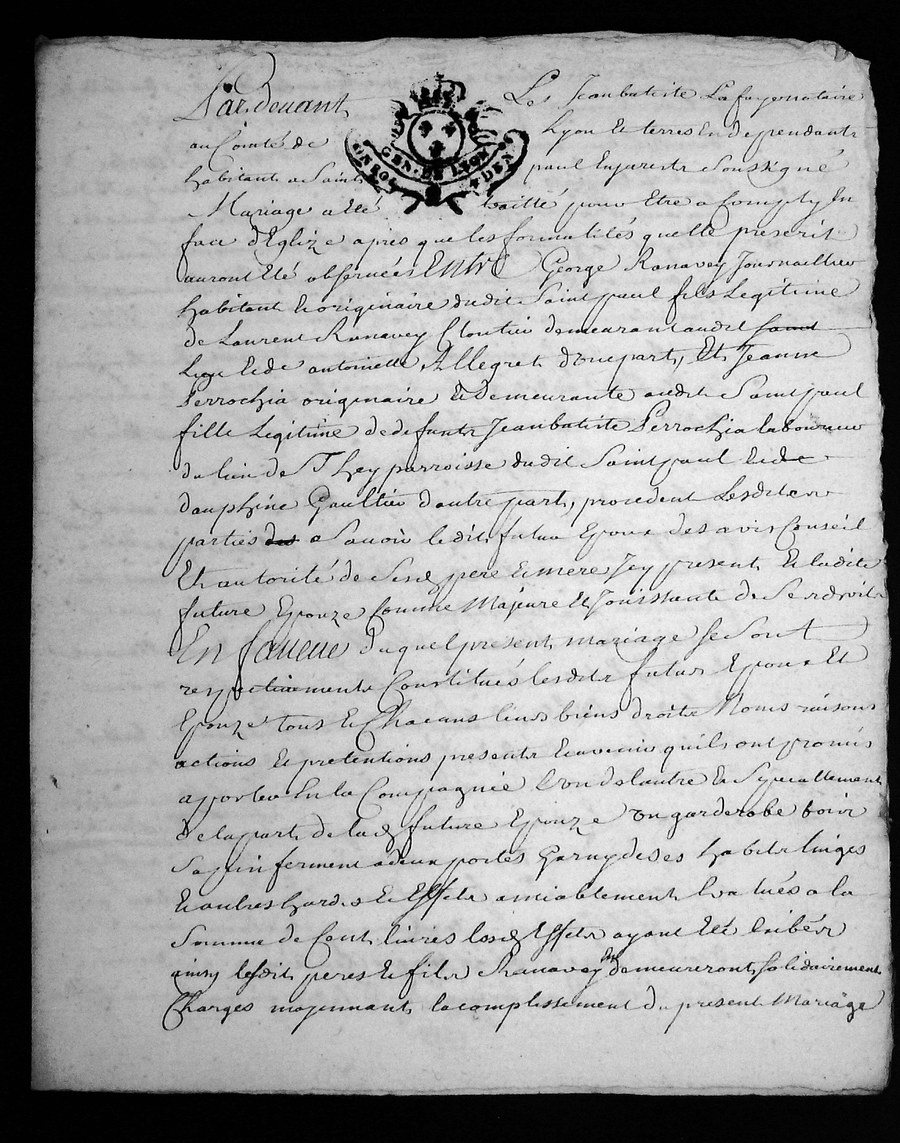 Pardevant Les Jeanbatiste Lafaye notaire
au Comté de Lyon Et terres En dependantes
GEN. DE LYON
habitant a Saint paul En jarest Soussigné
Mariage a eté traitté pour Etre acomply En
face d'Eglize apres que les formalités quelle prescrit
auront Eté observées Entre George Ranavey Journaillier
habitant & originaire dudit Saint paul fils Legitime
de Laurent Ranavey Cloutier demeurant audit Saint
Lieu & de antoinette Allegret d'une part, Et Jeanne
Perrochia originaire & demeurante audit Saint paul
fille Legitime de defunts Jeanbatiste Perrochia laboureur
du lieu de parroisse dudit Saint paul & de
dauphine Gaultier d'autre part, procedent Lesdites
parties a Savoir ledit futur Epoux des avis Conseil
Et autorité de Sesd pere & mere Icy present & ladite
future Epouze Comme Majeure Et Jouissante de Ses droits
En faveur duquel present mariage se Sont
respectivement Constitués lesdits futurs Epoux Et
Epouze tous & Chacuns leurs biens droits Noms raisons
actions & pretentions presents & avenir quils ont promis
apporter En la Compagnie L'un de lautre & Speciallement
de la part de lad future Epouze un garderobe bois
Sapin ferment a deux portes Garny de ses habits linges
& autres hardes & Effets amiablement Evalués a la
Somme de Cent livres lesd Effets ayant Eté Exibés
ainsy lesdit peres & fils Ranavey en demeureront Solidairement
Charges moyennant lacomplissement du present Mariage